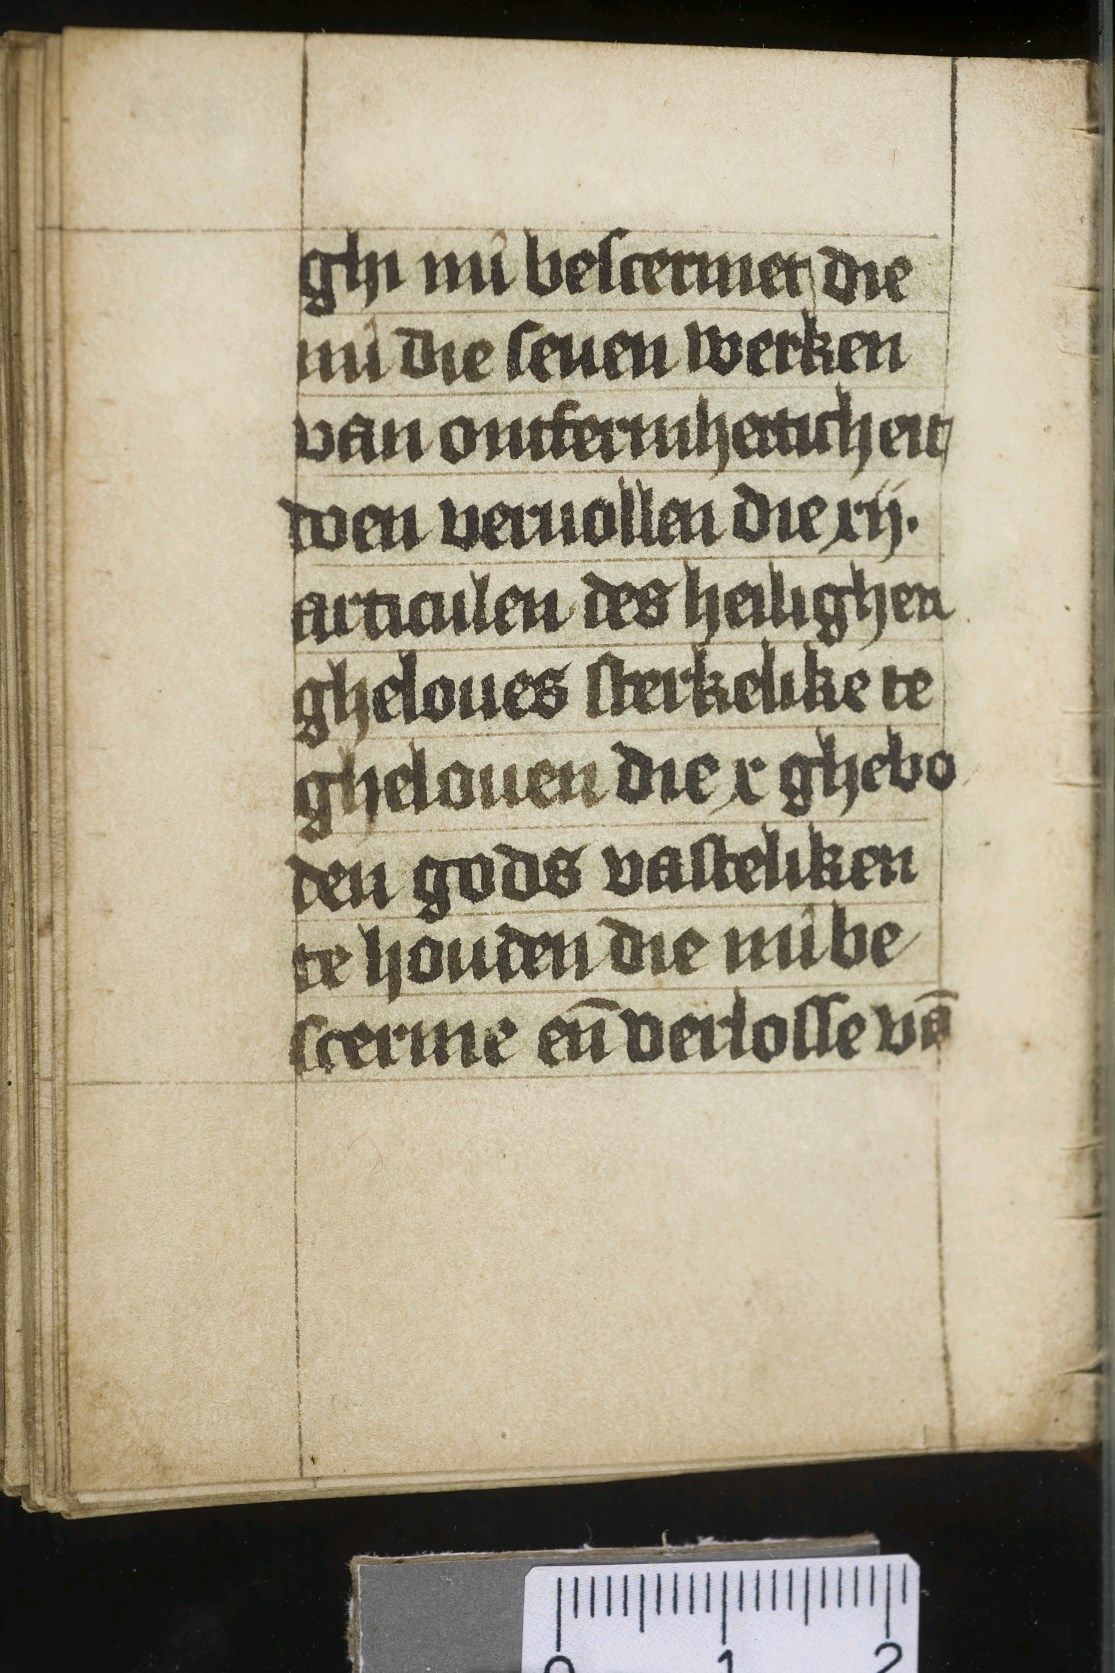 ghi mi bescermet die
mi die seuen werken
van omfermherticheit
doen veruollen die xij.
articulen des heilighen
gheloues sterkelike te
ghelouen die x ghebo
den gods vasteliken
te houden die mi be
scerme en̄ verlosse vā
0 1 2